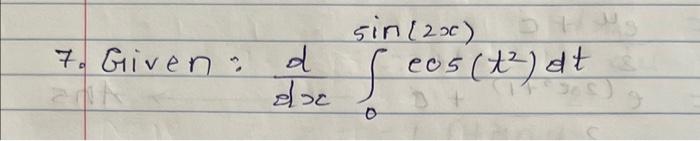 7. Given : d/dx ∫₀^sin(2x) cos(t²) dt